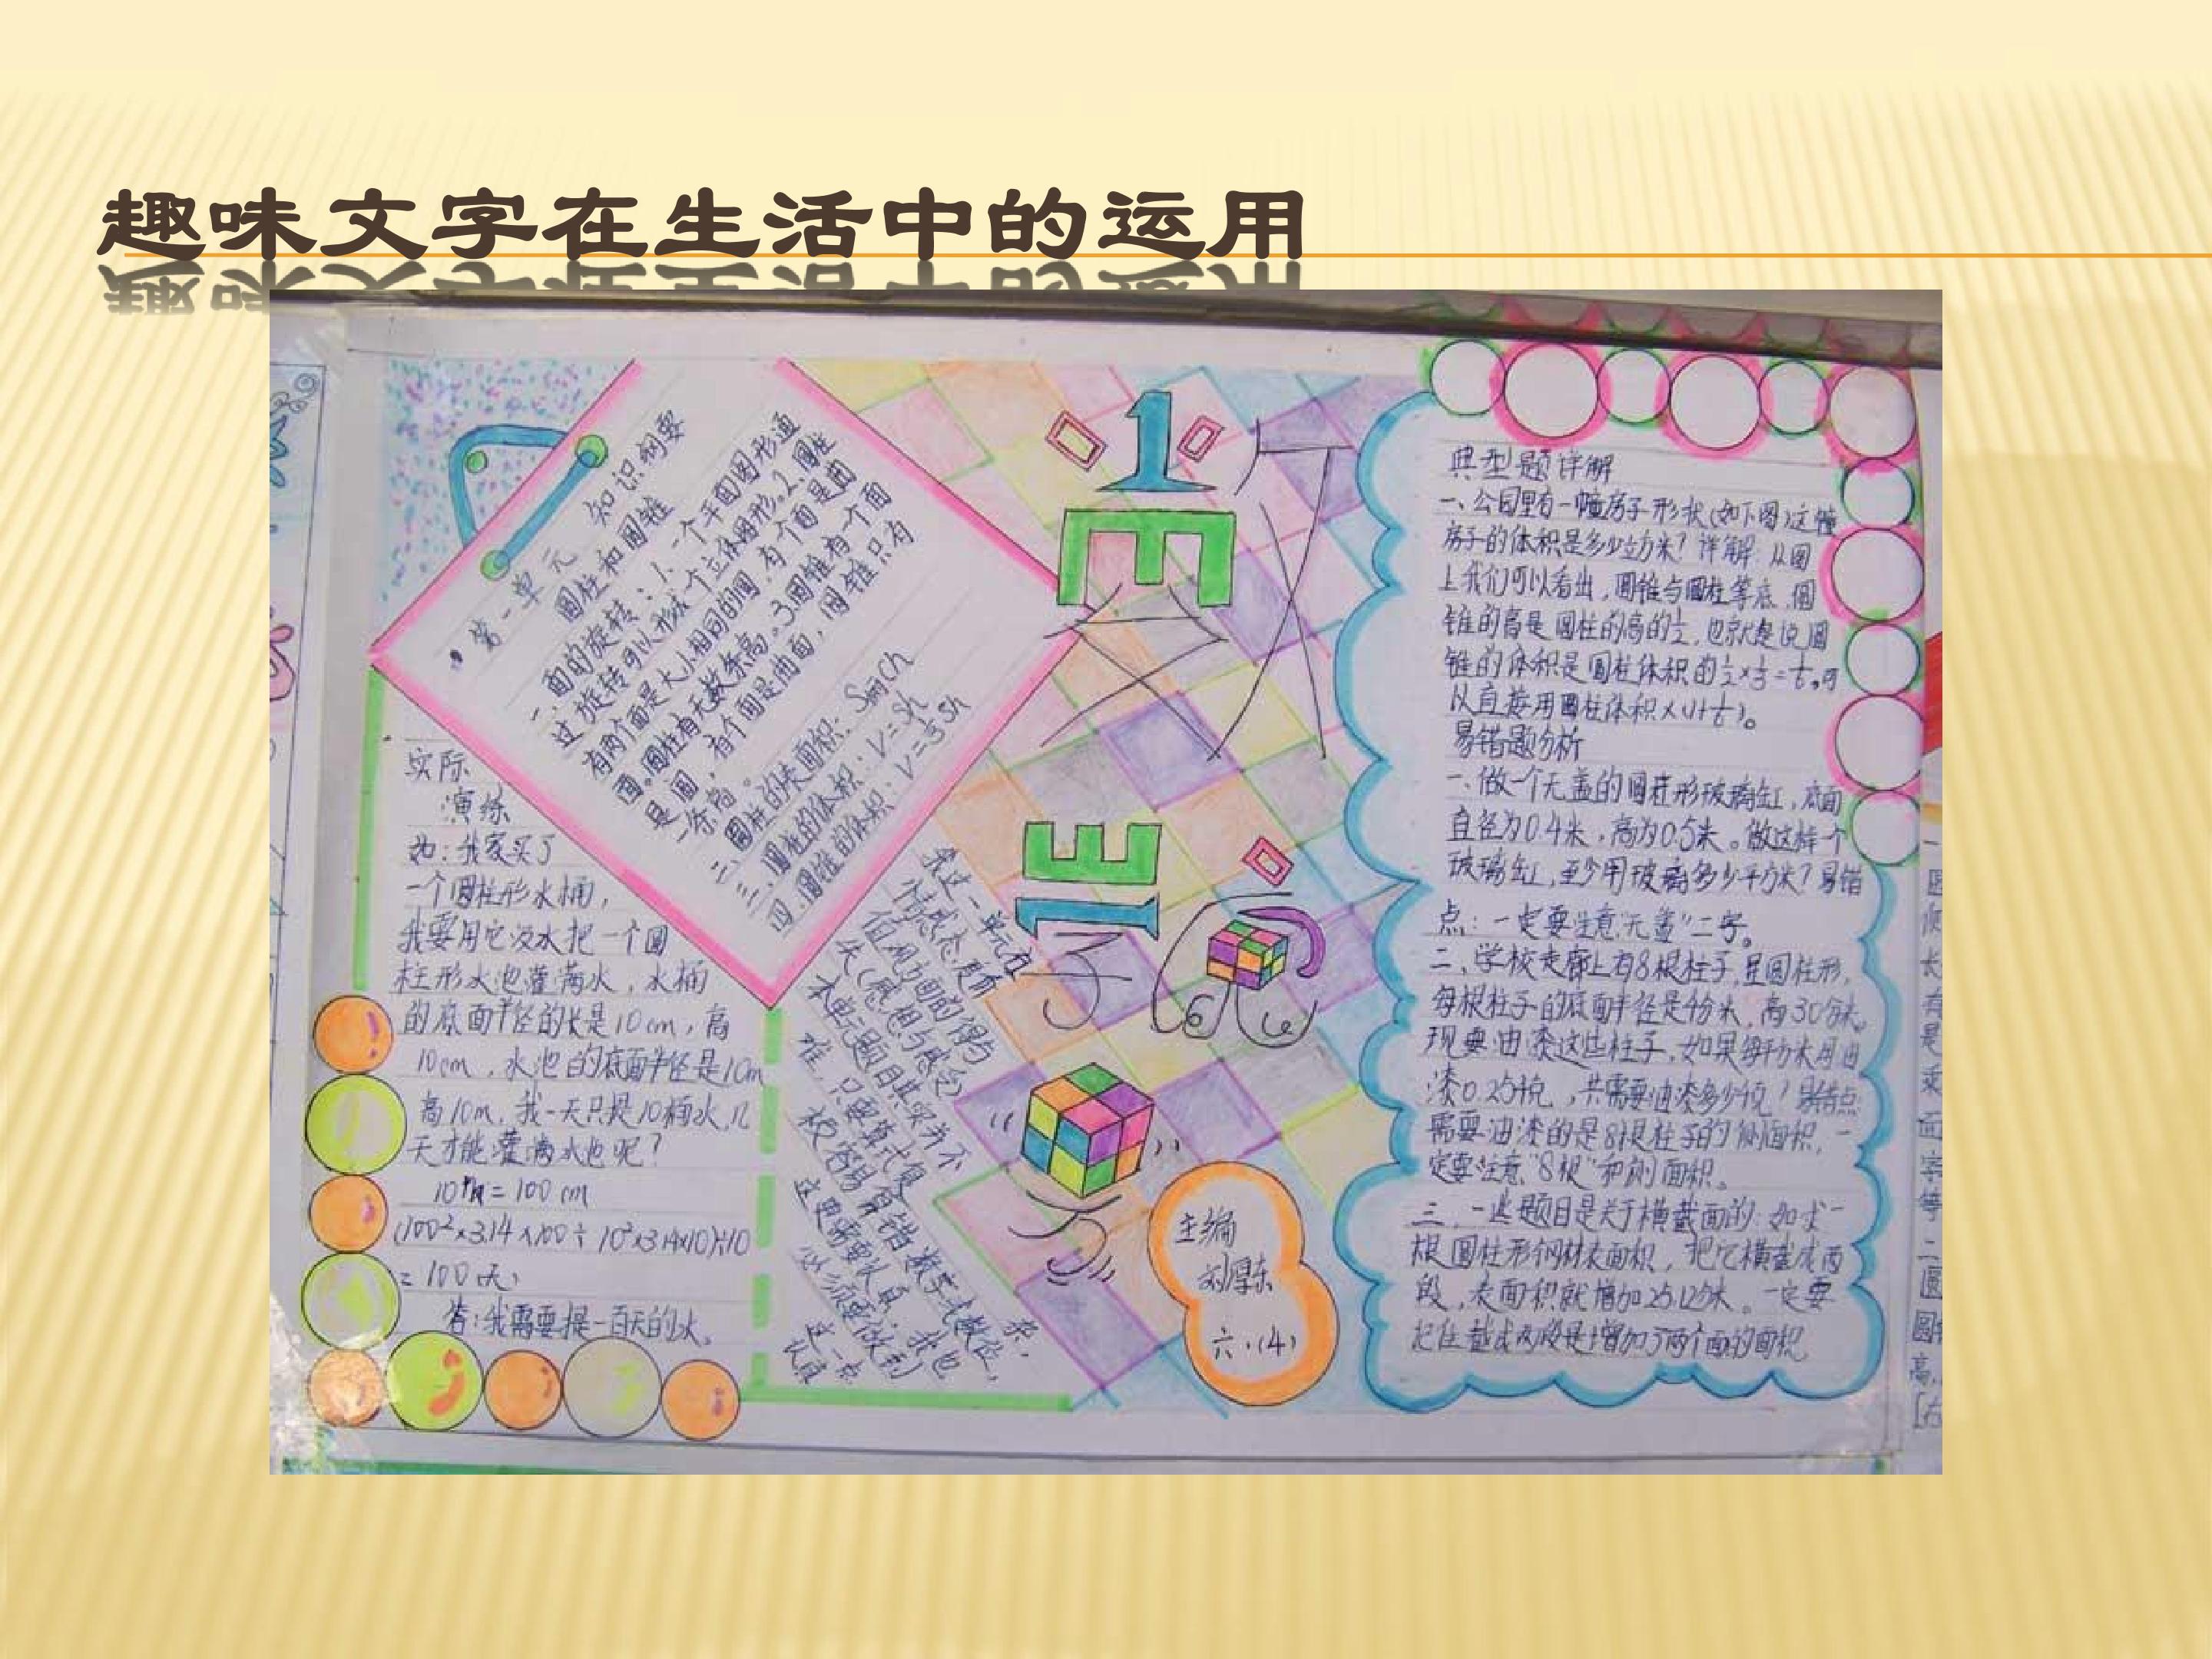 趣味文字在生活中的运用
第一单元 知识纲要
圆柱和圆锥
一、面的旋转：1、一个平面图形通
过旋转可以形成一个立体图形。2、圆柱
有两个面是大小相同的圆，有一个面是曲
面。圆柱有无数条高。3、圆锥有一个面
是圆，有一个面是曲面，圆锥只有
一条高。
二、圆柱的表面积：
三、圆柱的体积：V=Sh
四、圆锥的体积：V=⅓Sh
实际
演练
如：我家买了
一个圆柱形水桶，
我要用它没水把一个圆
柱形水池灌满水，水桶
的底面半径的长是10cm，高
10cm，水池的底面半径是1m
高10m，我一天只提10桶水，几
天才能灌满水池呢？
= 100 cm
(100²×3.14×100÷10²×3.14×10)÷10
=100(天)
答：我需要提一百天的水。
我这一单元在
情感态度价
值观方面的得与
失(感想与感受)
本单元题目其实并不
难，只要算式复杂，
数字大数位，
校容易背错
这更需要认真，我也
必须要做到
这一点
认真
数学
乐园
主编
刘厚东
六、(4)
典型题详解
一、公园里有一幢房子形状(如下图)这幢
房子的体积是多少立方米？详解：从图
上我们可以看出，圆锥与圆柱等底，圆
锥的高是圆柱的高的½，也就是说圆
锥的体积是圆柱体积的½×⅓=⅙。可
以直接用圆柱体积×(1+⅙)。
易错题分析
一、做一个无盖的圆柱形玻璃缸，底面
直径为0.4米，高为0.5米。做这样一个
玻璃缸，至少用玻璃多少平方米？易错
点：一定要注意“无盖”二字。
二、学校走廊上有8根柱子，呈圆柱形，
每根柱子的底面半径是4分米，高30分米。
现要油漆这些柱子，如果每平方米用油
漆0.25千克，共需要油漆多少千克？易错点
需要油漆的是8根柱子的侧面积，一
定要注意“8根”和侧面积。
三、一些题目是关于横截面的：如求一
根圆柱形钢材表面积，把它横截成两
段，表面积就增加25.12分米。一定要
记住截成两段是增加了两个面的面积